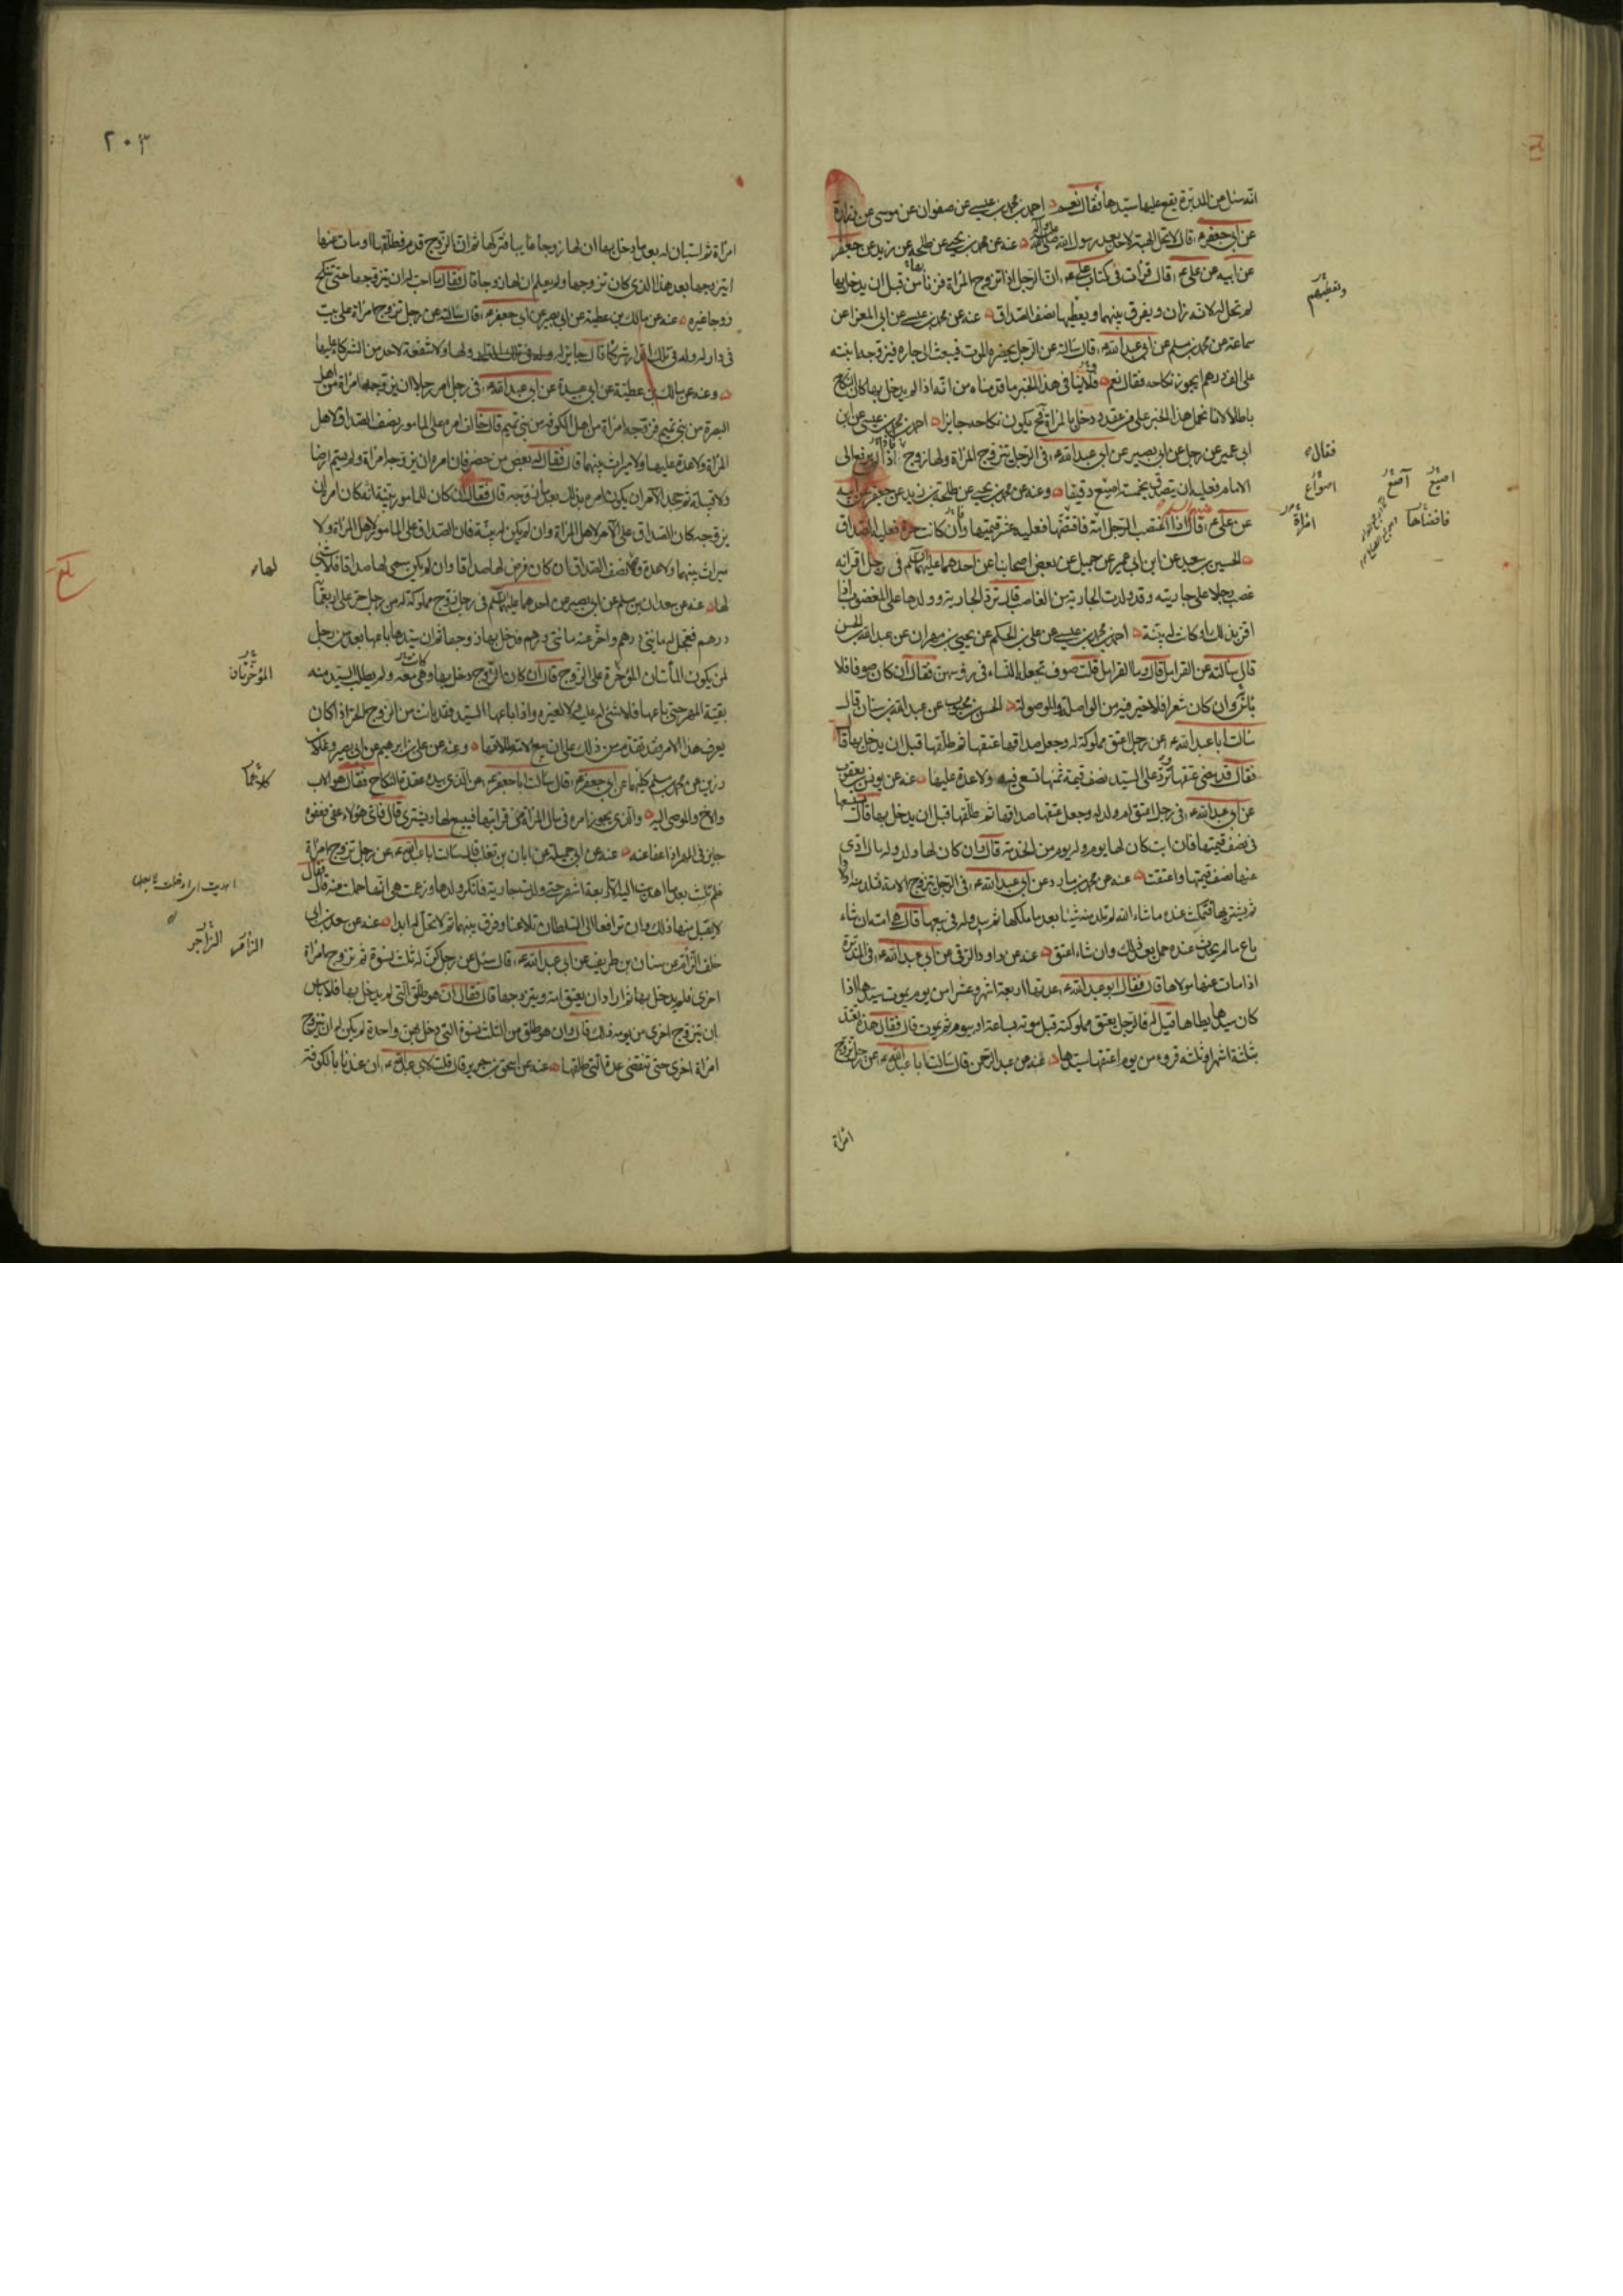 انه سئل عن المدبرة يقع عليها سيدها فقال نعم احمد بن محمد بن عيسى عن صفوان عن موسى عن زرارة
عن ابي جعفر ع قال لا تحل الهبة لاحد بعد رسول الله صلى الله عليه وآله عنه عن محمد بن يحيى عن طلحة بن زيد عن جعفر
عن ابيه عن علي ع قال قرأت في كتاب علي ع ان الرجل اذا تزوج المرأة فزنا من قبل ان يدخل بها
لم تحل له لانه زان و يفرق بينهما و يعطيها نصف الصداق عنه عن محمد بن عيسى عن ابي المغرا عن
سماعة عن محمد بن مسلم عن ابي عبد الله ع قال سالته عن الرجل يحضره الموت فيبعث الى جاره فيزوجه ابنته
على الف درهم ايجوز نكاحه فقال نعم فلا ينافي هذا الخبر ما قدمناه من انه اذا لم يدخل بها كان النكاح
باطلا لانا نحمل هذا الخبر على من عقد و دخل بالمرأة فح يكون نكاحه جايزا احمد بن محمد بن عيسى عن ابن
ابي عمير عن رجل عن ابي بصير عن ابي عبد الله ع في الرجل يتزوج المرأة ولها زوج اذا لم يرفع الى
الامام فعليه ان يتصدق بخمسة اصيع دقيقا وعنه عن محمد بن يحيى عن طلحة بن زيد عن جعفر عن ابيه
عن علي ع قال اذا اغتصب الرجل امة فاقتضها فعليه عشر قيمتها وان كانت حرة فعليه الصداق
الحسين بن سعيد عن ابن ابي عمير عن جميل عن بعض اصحابنا عن احدهما عليهما السلم في رجل اقر انه
غصب رجلا على جاريته وقد ولدت الجارية من الغاصب قال ترد الجارية وولدها على المغصوب اذا
اقر بذلك او كانت له بينة احمد بن محمد بن عيسى عن علي بن الحكم عن يحيى بن مهران عن عبد الله بن الحسن
قال سالته عن القرامل قال وما القرامل قلت صوف تجعله النساء في رؤسهن فقال ان كان صوفا فلا
باس وان كان شعرا فلا خير فيه من الواصلة والموصولة الحسن بن محبوب عن عبد الله بن سنان قال
سالت ابا عبد الله ع عن رجل اعتق مملوكة له وجعل صداقها عتقها ثم طلقها قبل ان يدخل بها قال
فقال قد مضى عتقها ترد على السيد نصف قيمة ثمنها تسعى فيه ولا عدة عليها عنه عن يونس بن يعقوب
عن ابي عبد الله ع في رجل اعتق ام ولد له وجعل عتقها صداقها ثم طلقها قبل ان يدخل بها قال
في نصف قيمتها فان ابت كان لها يوم وله يوم من الخدمة قال وان كان لها ولد وله مال ادى
عنها نصف قيمتها واعتقت عنه عن محمد بن مارد عن ابي عبد الله ع في الرجل يتزوج الامة فتلد منه
ثم يشتريها فتمكث عنده ما شاء الله لم تلد منه شيئا بعد ما ملكها ثم يبدو له في بيعها قال هي امته ان شاء
باع ما لم يحدث عنده حمل بعد ذلك وان شاء اعتق عنه عن داود الرقي عن ابي عبد الله ع في المدبرة
اذا مات عنها مولاها قال فقال ابو عبد الله ع عدتها اربعة اشهر وعشرا من يوم يموت سيدها اذا
كان سيدها يطاها قيل له فالرجل يعتق مملوكته قبل موته بساعة او بيوم ثم يموت قال فقال هذه تعتد
بثلثة اشهر او ثلثة قروء من يوم اعتقها سيدها عنه عن عبد الرحمن قال سالت ابا عبد الله ع عن رجل تزوج
امرأة
ونعطيهم
فقال
اصيع آصع اصواع
فافتضاها
امرأة
٢٠٣
امرأة ثم استبان له بعد ما دخل بها ان لها زوجا غايبا فتركها ثم ان الزوج قدم فطلقها او مات عنها
ايتزوجها بعد هذا الذي كان تزوجها ولم يعلم ان لها زوجا قال فقال ما احب له ان يتزوجها حتى تنكح
زوجا غيره عنه عن مالك بن عطية عن ابي بصير عن ابي جعفر ع قال سالته عن رجل تزوج امرأة على بيت
في دار له وله في تلك الدار شركاء قال جايز له ولها ولا شفعة لاحد من الشركاء عليها
وعنه عن مالك بن عطية عن ابي عبيدة عن ابي عبد الله ع في رجل امر رجلا ان يزوجه امرأة من اهل
البصرة من بني تميم فزوجه امرأة من اهل الكوفة من بني تميم قال خالف امره على المامور نصف الصداق لاهل
المرأة ولا عدة عليها ولا ميراث بينهما قال فقال له بعض من حضر فان امره ان يزوجه امرأة ولم يسم ارضا
ولا قبيلة ثم جحد الآمر ان يكون امره بذلك بعد ما زوجه قال فقال ان كان للمامور بينة انه كان امره ان
يزوجه كان الصداق على الآمر لاهل المرأة وان لم يكن له بينة فان الصداق على المامور لاهل المرأة ولا
ميراث بينهما ولا عدة ولها نصف الصداق ان كان فرض لها صداقا وان لم يكن سمى لها صداقا فلا شئ
لها عنه عن سعدان بن مسلم عن ابي بصير عن احدهما عليهما السلم في رجل زوج مملوكة له من رجل حر على اربعمأة
درهم فعجل له مائتي درهم واخر عنه مائتي درهم فدخل بها زوجها ثم ان سيدها باعها بعد من رجل
لمن يكون المأتان المؤخرة على الزوج قال ان كان الزوج دخل بها وهي معه ولم يطلب السيد منه
بقية المهر حتى باعها فلا شئ له عليه ولا لغيره واذا باعها السيد فقد بانت من الزوج الحر اذا كان
يعرف هذا الامر وقد تقدم من ذلك على ان بيع الامة طلاقها وعنه عن علي بن ابراهيم عن ابي بصير وعلاء بن
رزين عن محمد بن مسلم كليهما عن ابي جعفر ع قال سالت ابا جعفر ع عن الذي بيده عقدة النكاح فقال هو الاب
والاخ والموصى اليه والذي يجوز امره في مال المرأة من قرابتها فيبيع لها ويشتري قال فاي هؤلاء عفى فعفوه
جايز في المهر اذا عفا عنه عنه عن ابي جميلة عن ابان بن تغلب قال سالت ابا عبد الله ع عن رجل تزوج امرأة
فلم تلبث بعد ما اهديت اليه الا اربعة اشهر حتى ولدت جارية فانكر ولدها وزعمت هي انها حملت منه قال
لا يقبل منها ذلك وان ترافعا الى السلطان تلاعنا وفرق بينهما ثم لا تحل له ابدا عنه عن سعد بن ابي
خلف الزام عن سنان بن طريف عن ابي عبد الله ع قال سئل عن رجل كن له ثلث نسوة ثم تزوج امرأة
اخرى فلم يدخل بها ثم اراد ان يعتق امته ويتزوجها قال فقال ان هو طلق التي لم يدخل بها فلا باس
ان يتزوج اخرى من يومه ذلك قال وان هو طلق من الثلث نسوة التي دخل بهن واحدة لم يكن له ان يتزوج
امرأة اخرى حتى تنقضي عدة التي طلقها عنه عن اسحق بن جرير قال قلت لابي عبد الله ع ان عندنا بالكوفة
لها
المؤخرتان
كلاهما
الزام الزاجر